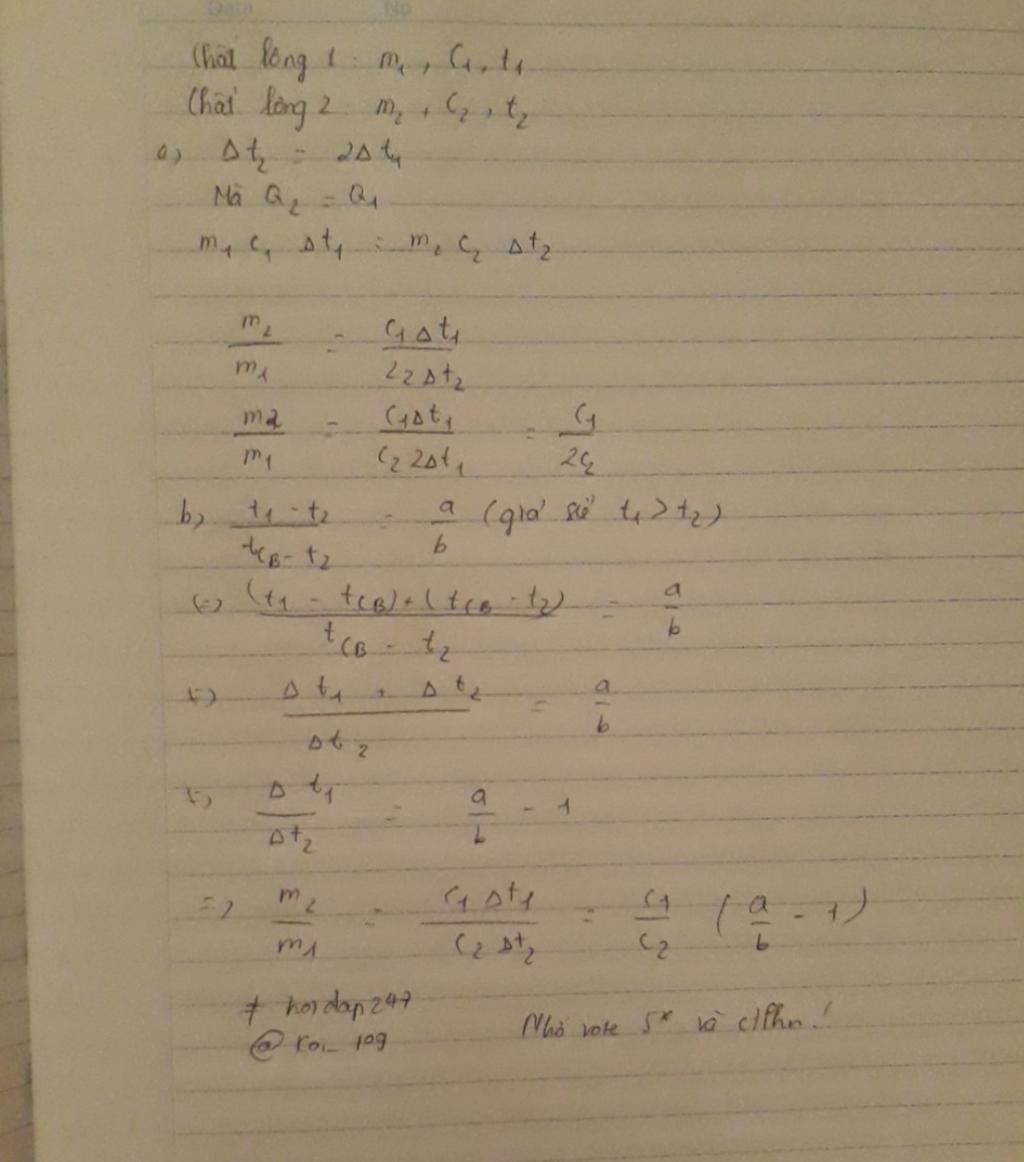 Date No
Chất lỏng 1: m₁, C₁, t₁
Chất lỏng 2: m₂, C₂, t₂
a, Δt₂ = 2Δt₁
Mà Q₂ = Q₁
m₁ C₁ Δt₁ = m₂ C₂ Δt₂
m₂/m₁ = C₁Δt₁/C₂Δt₂
m₂/m₁ = C₁Δt₁/C₂2Δt₁ = C₁/2C₂
b, (t₁ - t₂)/(t_CB - t₂) = a/b (giả sử t₁ > t₂)
(=) ((t₁ - t_CB) + (t_CB - t₂))/(t_CB - t₂) = a/b
(=) (Δt₁ + Δt₂)/Δt₂ = a/b
(=) Δt₁/Δt₂ = a/b - 1
=) m₂/m₁ = C₁Δt₁/C₂Δt₂ = C₁/C₂ (a/b - 1)
# hoidap247
Nhớ vote 5* và ctlhn!